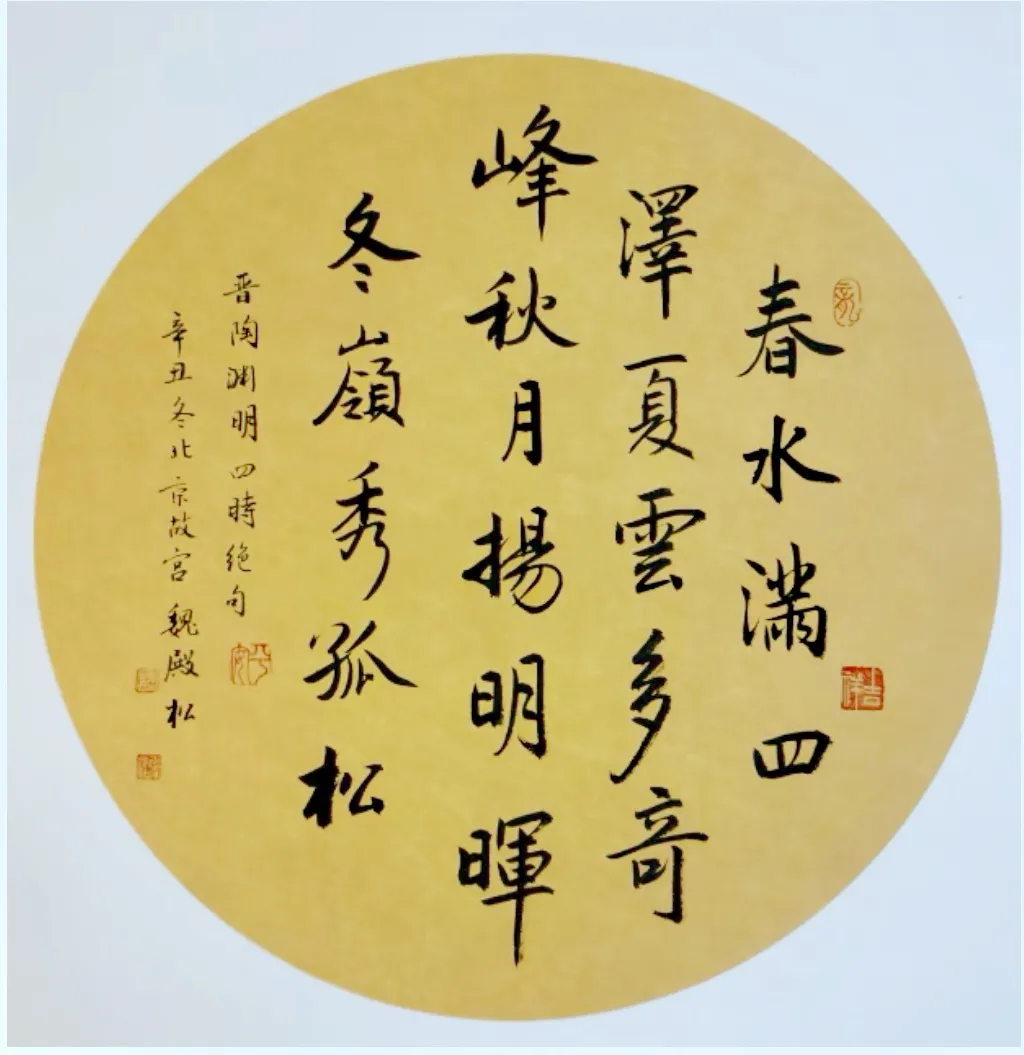 春水滿四
澤夏雲多奇
峰秋月揚明暉
冬嶺秀孤松
晋陶渊明四時絕句
辛丑冬北京故宮魏殿松
吉祥
平安